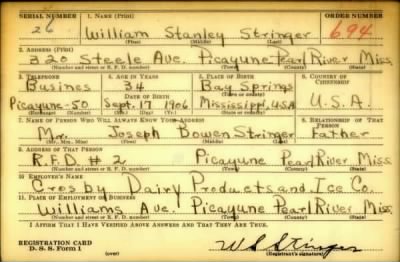 SERIAL NUMBER 1. NAME (Print) ORDER NUMBER
26 William Stanley Stringer 694
(First) (Middle) (Last)
2. ADDRESS (Print)
320 Steele Ave. Picayune Pearl River Miss.
(Number and street or R. F. D. number) (Town) (County) (State)
3. TELEPHONE 4. AGE IN YEARS 5. PLACE OF BIRTH 6. COUNTRY OF CITIZENSHIP
Busines 34 Bay Springs
DATE OF BIRTH
Picayune-50 Sept. 17 1906 Mississippi, USA U.S.A.
(Exchange) (Number) (Mo.) (Day) (Yr.) (State or country)
7. NAME OF PERSON WHO WILL ALWAYS KNOW YOUR ADDRESS 8. RELATIONSHIP OF THAT PERSON
Mr. Joseph Bowen Stringer Father
(Mr., Mrs., Miss) (First) (Middle) (Last)
9. ADDRESS OF THAT PERSON
R.F.D. # 2 Picayune Pearl River Miss.
(Number and street or R. F. D. number) (Town) (County) (State)
10. EMPLOYER'S NAME
Crosby Dairy Products and Ice Co.
11. PLACE OF EMPLOYMENT OR BUSINESS
Williams Ave. Picayune Pearl River Miss.
(Number and street or R. F. D. number) (Town) (County) (State)
I AFFIRM THAT I HAVE VERIFIED ABOVE ANSWERS AND THAT THEY ARE TRUE.
REGISTRATION CARD
D. S. S. Form 1 (over) W S Stringer
(Registrant's signature)